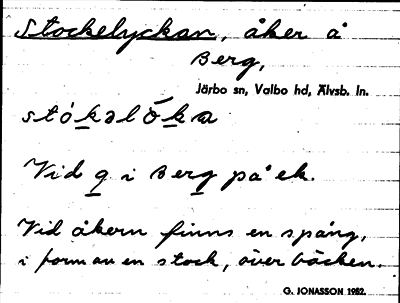 Stockelyckan, åker å
Berg,
Järbo sn, Valbo hd, Älvsb. ln.
stókəlóka
Vid g i Berg på ek.
Vid åkern finns en spång,
i form av en stock, över bäcken.
G. JONASSON 1982.